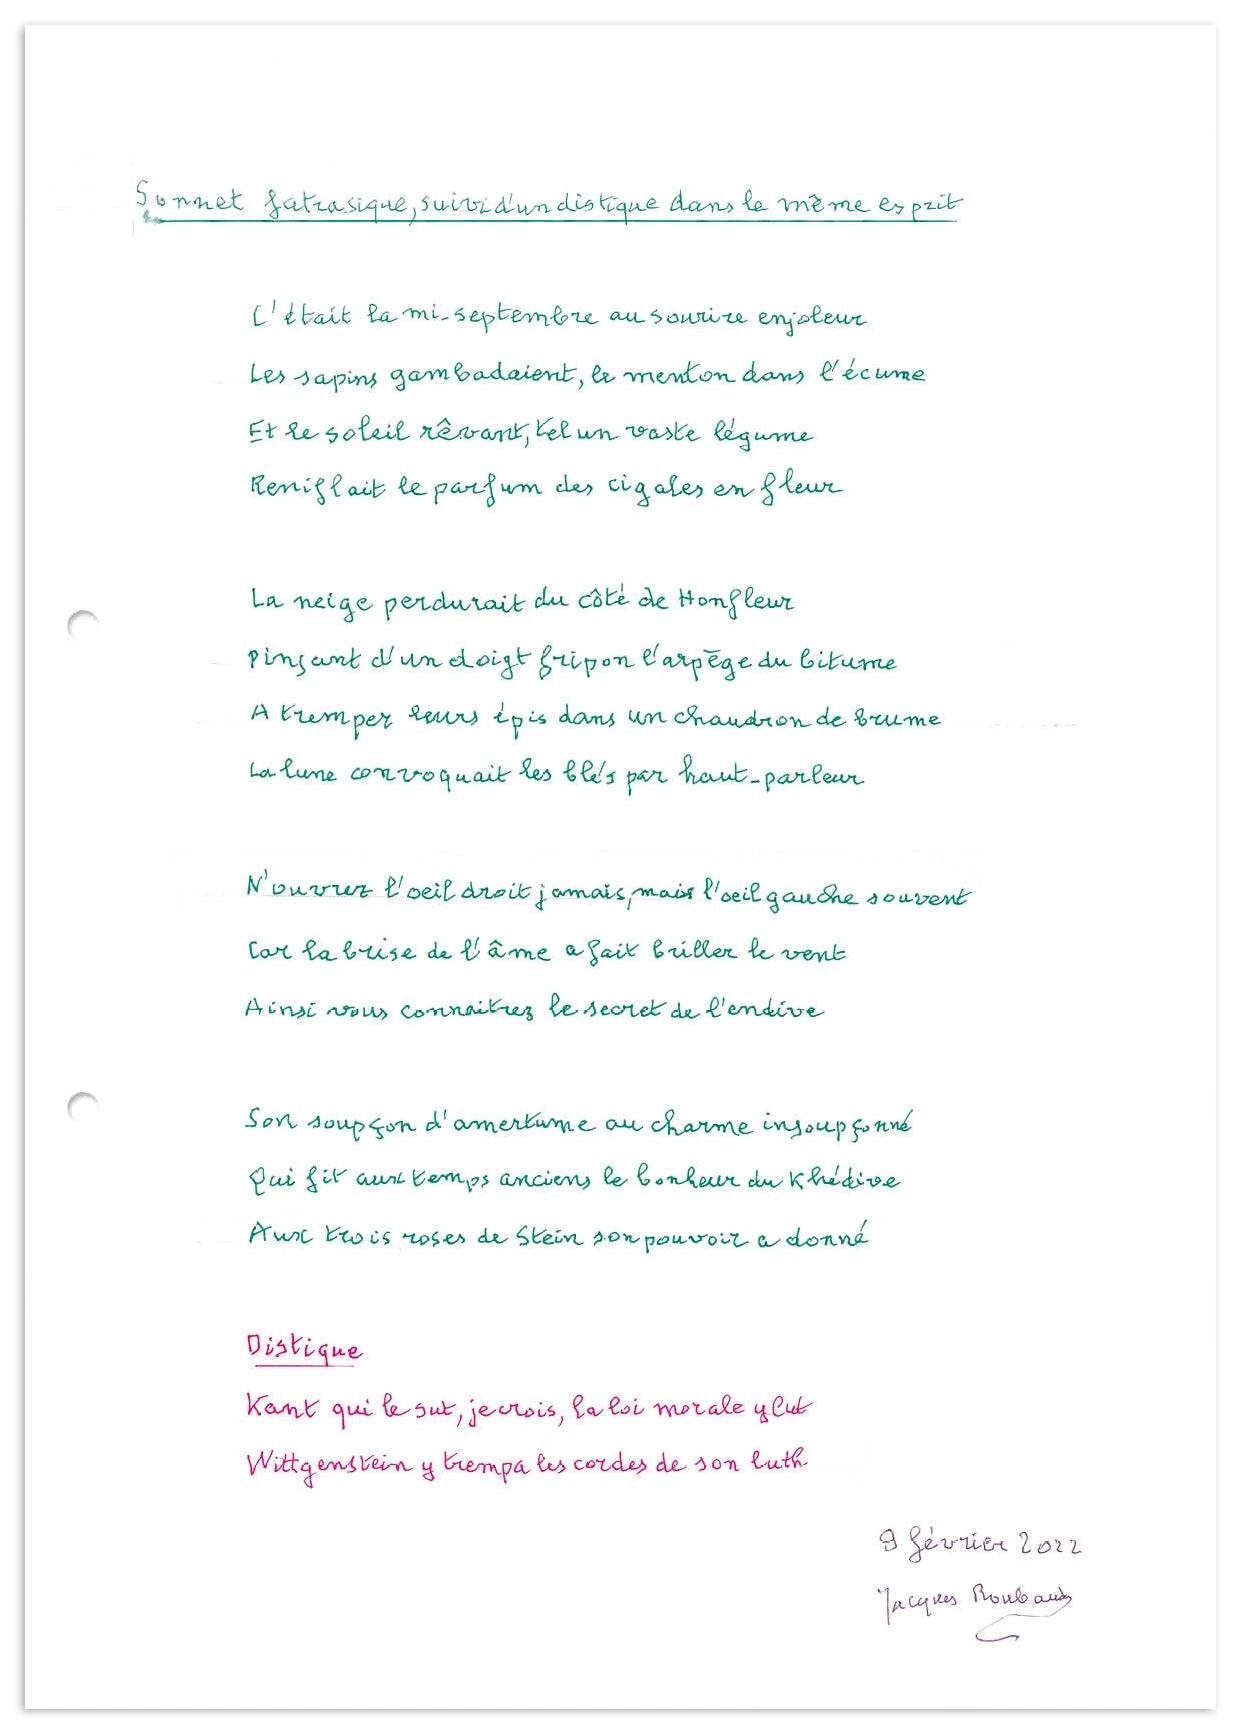 Sonnet fatrasique, suivi d'un distique dans le même esprit
C'était la mi-septembre au sourire enjoleur
Les sapins gambadaient, le menton dans l'écume
Et le soleil rêvant, tel un vaste légume
Reniflait le parfum des cigales en fleur
La neige perdurait du côté de Honfleur
Pinçant d'un doigt fripon l'arpège du bitume
A tremper leurs épis dans un chaudron de brume
La lune convoquait les blés par haut-parleur
N'ouvrez l'oeil droit jamais, mais l'oeil gauche souvent
Car la brise de l'âme a fait briller le vent
Ainsi vous connaitrez le secret de l'endive
Son soupçon d'amertume au charme insoupçonné
Qui fit aux temps anciens le bonheur du Khédive
Aux trois roses de Stein son pouvoir a donné
Distique
Kant qui le sut, je crois, la loi morale y lut
Wittgenstein y trempa les cordes de son luth
9 février 2022
Jacques Roubaud